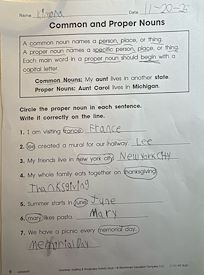 Name Liyana Date 11-20-2
Common and Proper Nouns
A common noun names a person, place, or thing.
A proper noun names a specific person, place, or thing.
Each main word in a proper noun should begin with a
capital letter.
Common Nouns: My aunt lives in another state.
Proper Nouns: Aunt Carol lives in Michigan.
Circle the proper noun in each sentence.
Write it correctly on the line.
1. I am visiting france. France
2. lee created a mural for our hallway. Lee
3. My friends live in new york city. New york City
4. My whole family eats together on thanksgiving.
Thanksgiving
5. Summer starts in june. June
6. mary likes pasta. Mary
7. We have a picnic every memorial day.
Memorial Day